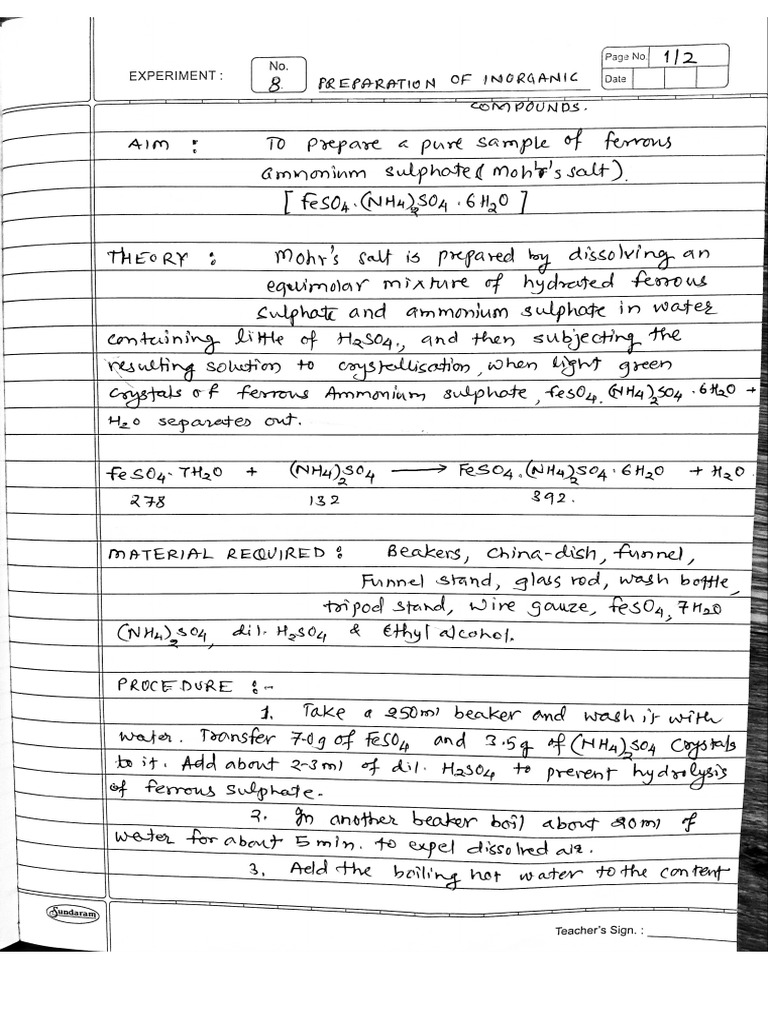 EXPERIMENT : No. 8 PREPARATION OF INORGANIC Page No. 1/2
Date
COMPOUNDS.
AIM : To prepare a pure sample of ferrous
ammonium sulphate (Mohr's salt).
[ FeSO4.(NH4)2SO4.6H2O ]
THEORY : Mohr's salt is prepared by dissolving an
equimolar mixture of hydrated ferrous
sulphate and ammonium sulphate in water
containing little of H2SO4., and then subjecting the
resulting solution to crystallisation, when light green
crystals of ferrous Ammonium sulphate, feSO4.(NH4)2SO4.6H2O +
H2O separates out.
FeSO4.7H2O + (NH4)2SO4 → FeSO4.(NH4)2SO4.6H2O + H2O.
278 132 392.
MATERIAL REQUIRED : Beakers, China-dish, funnel,
Funnel stand, glass rod, wash bottle,
tripod stand, wire gauze, feSO4, 7H2O
(NH4)2SO4, dil. H2SO4 & Ethyl alcohol.
PROCEDURE :-
1. Take a 250ml beaker and wash it with
water. Transfer 7.0g of FeSO4 and 3.5g of (NH4)2SO4 Crystals
to it. Add about 2-3ml of dil. H2SO4 to prevent hydrolysis
of ferrous sulphate.
2. In another beaker boil about 20ml of
water for about 5 min. to expel dissolved air.
3. Add the boiling hot water to the content
Sundaram
Teacher's Sign. :